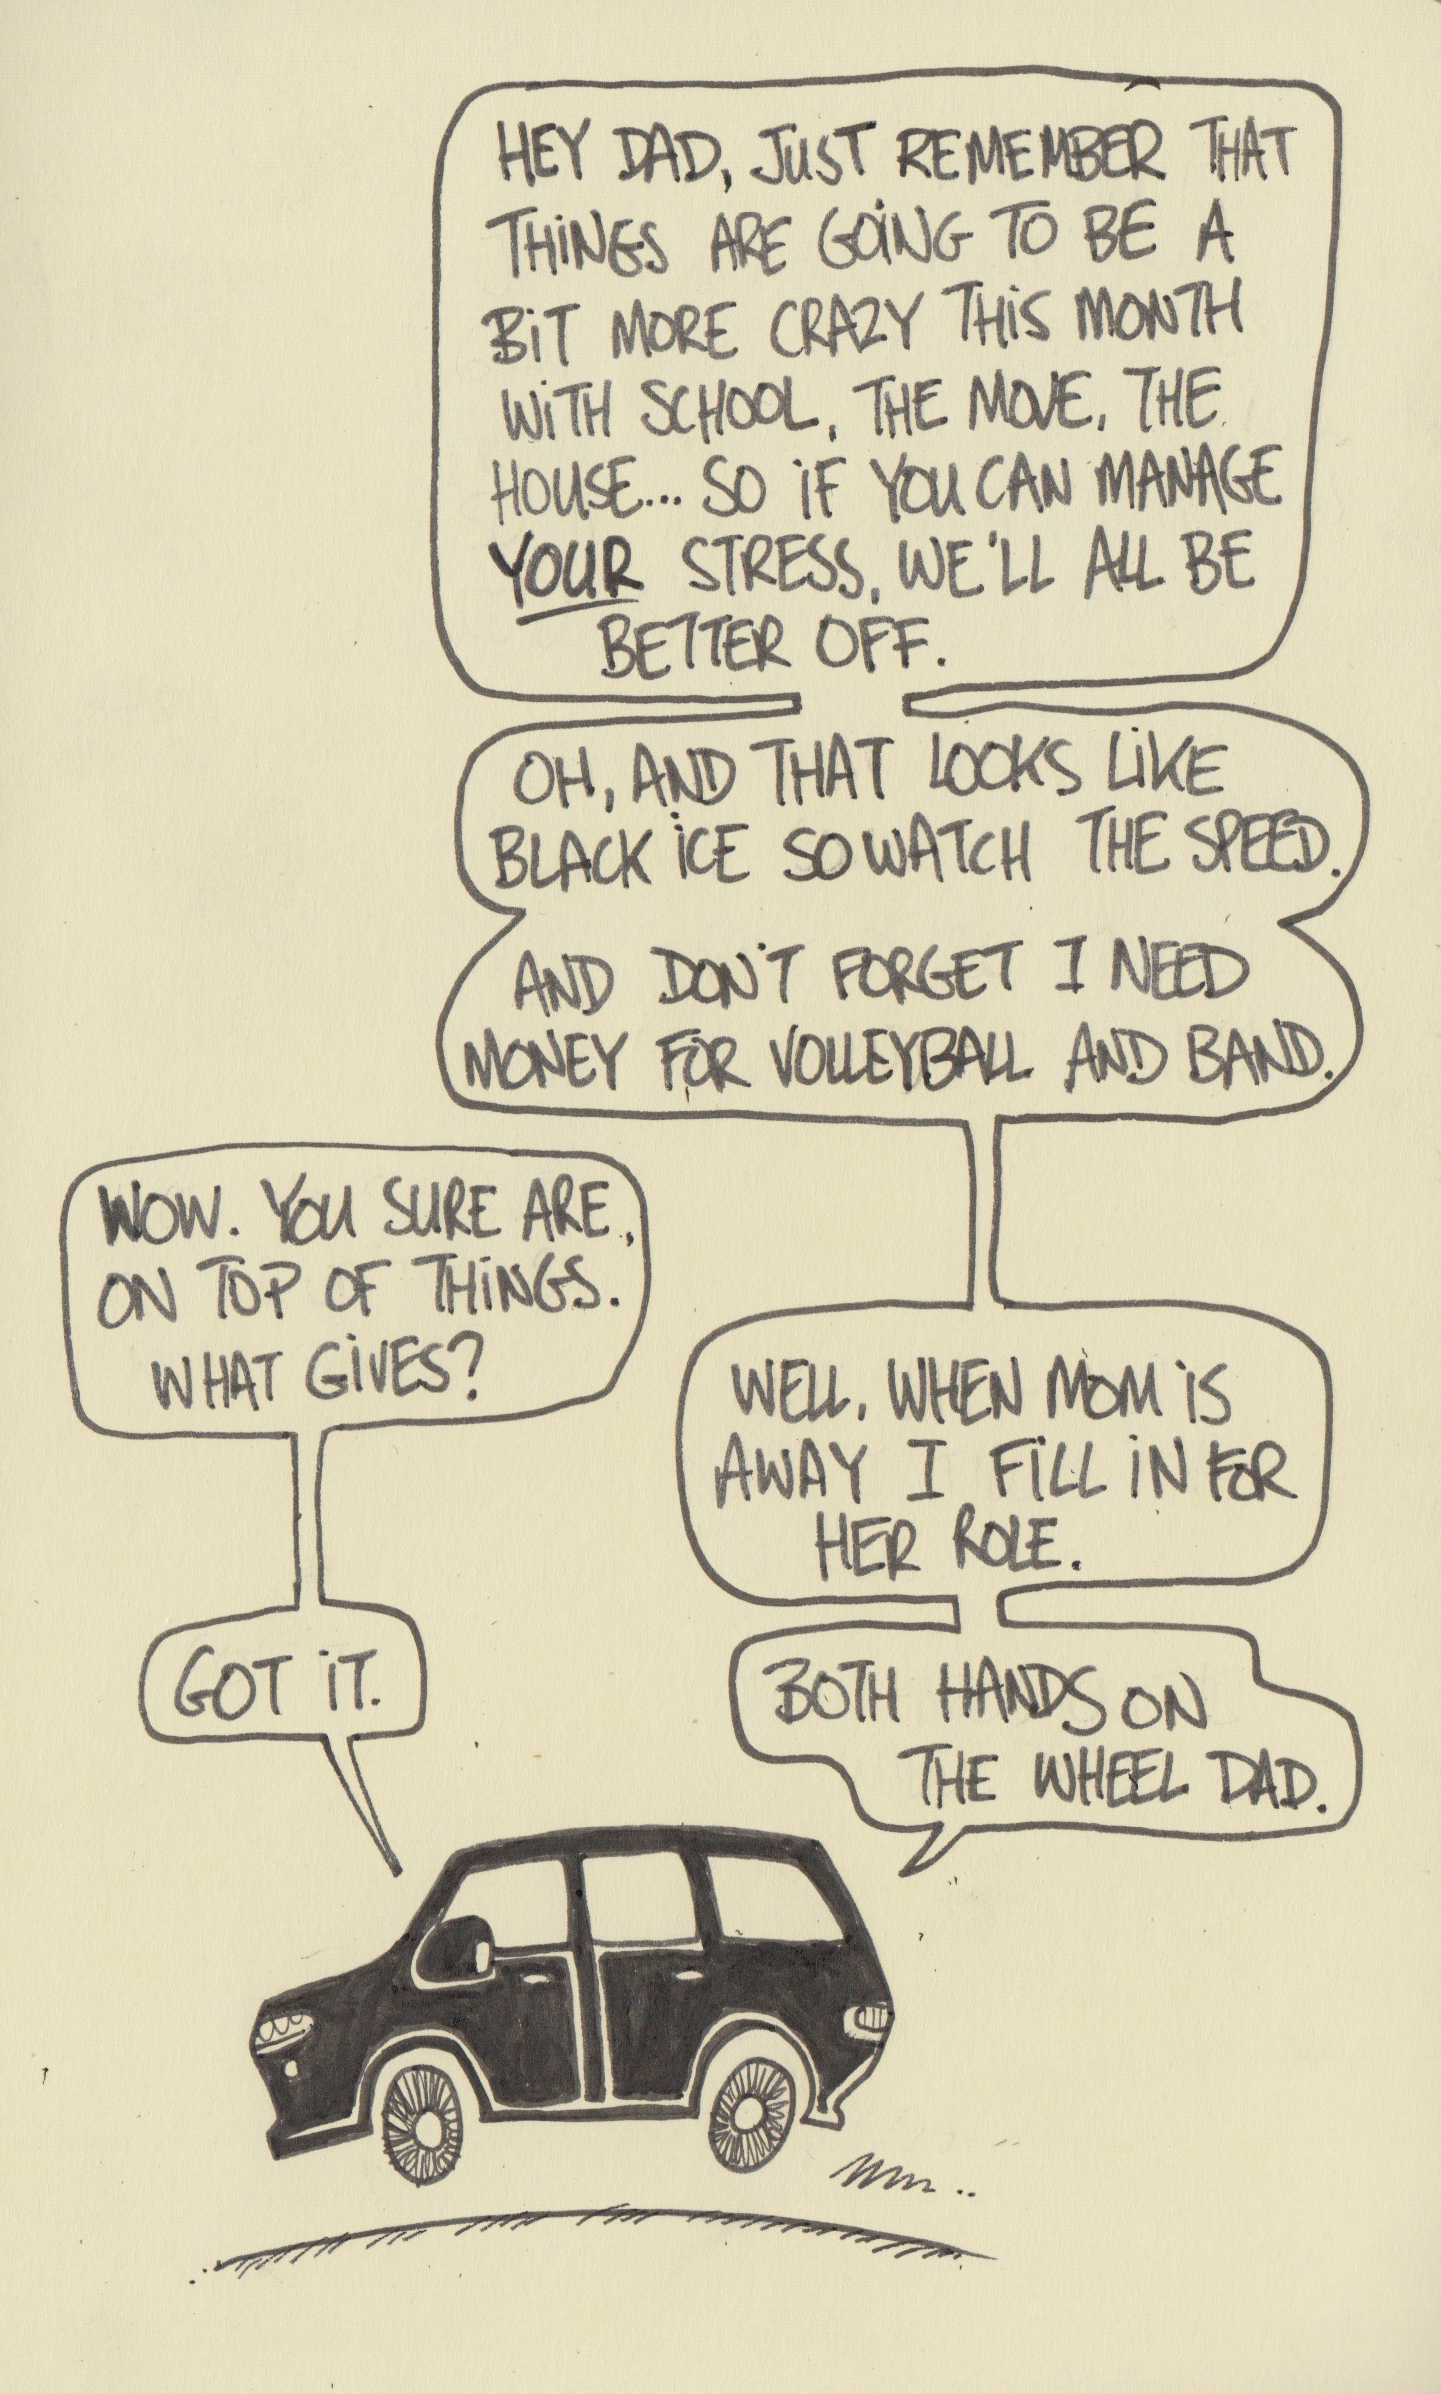 HEY DAD, JUST REMEMBER THAT
THINGS ARE GOING TO BE A
BIT MORE CRAZY THIS MONTH
WITH SCHOOL, THE MOVE, THE
HOUSE... SO IF YOU CAN MANAGE
YOUR STRESS, WE'LL ALL BE
BETTER OFF.
OH, AND THAT LOOKS LIKE
BLACK ICE SO WATCH THE SPEED.
AND DON'T FORGET I NEED
MONEY FOR VOLLEYBALL AND BAND.
WOW. YOU SURE ARE
ON TOP OF THINGS.
WHAT GIVES?
WELL, WHEN MOM IS
AWAY I FILL IN FOR
HER ROLE.
GOT IT.
BOTH HANDS ON
THE WHEEL DAD.